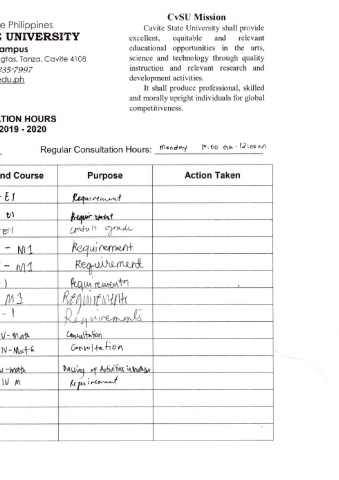 e Philippines
UNIVERSITY
ampus
gtas, Tanza, Cavite 4108
235-7997
edu.ph
CvSU Mission
Cavite State University shall provide
excellent, equitable and relevant
educational opportunities in the arts,
science and technology through quality
instruction and relevant research and
development activities.
It shall produce professional, skilled
and morally upright individuals for global
competitiveness.
ATION HOURS
2019 - 2020
Regular Consultation Hours: Monday - 12:00 nn
nd Course Purpose Action Taken
- E1 Requirement
E1 consult grade
- M1 Requirement
- M1 Requirement
1 Requirements
M1 REQUIREMENTS
- 1 Requirements
V - Math Consultation
IV - Mat Consultation
- Math Passing of Activities
IV M Requirement